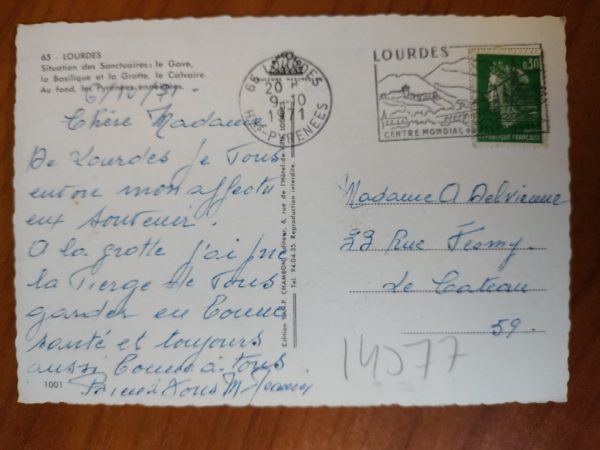 65 - LOURDES
Situation des Sanctuaires : le Gave,
la Basilique et la Grotte, le Calvaire.
Au fond, les Pyrénées enneigées.
6/10/71
Chère Madame
De Lourdes je Vous
envoie mon affectu
eux souvenir.
A la grotte j'ai prié
la Vierge de Vous
garder en bonne
santé et toujours
aussi bonne à tous
1001
65 LOURDES
20 H
9-10
1971
Htes-PYRENEES
LOURDES
CENTRE MONDIAL
0,30
REPUBLIQUE FRANÇAISE
Edition P. CHAMBON, éditeur, 6, rue de l'Hôtel-de-
Tél. 94-04-35. Reproduction interdite.
Madame A Delvienne
33 Rue Fesmy
Le Cateau
59.
14077